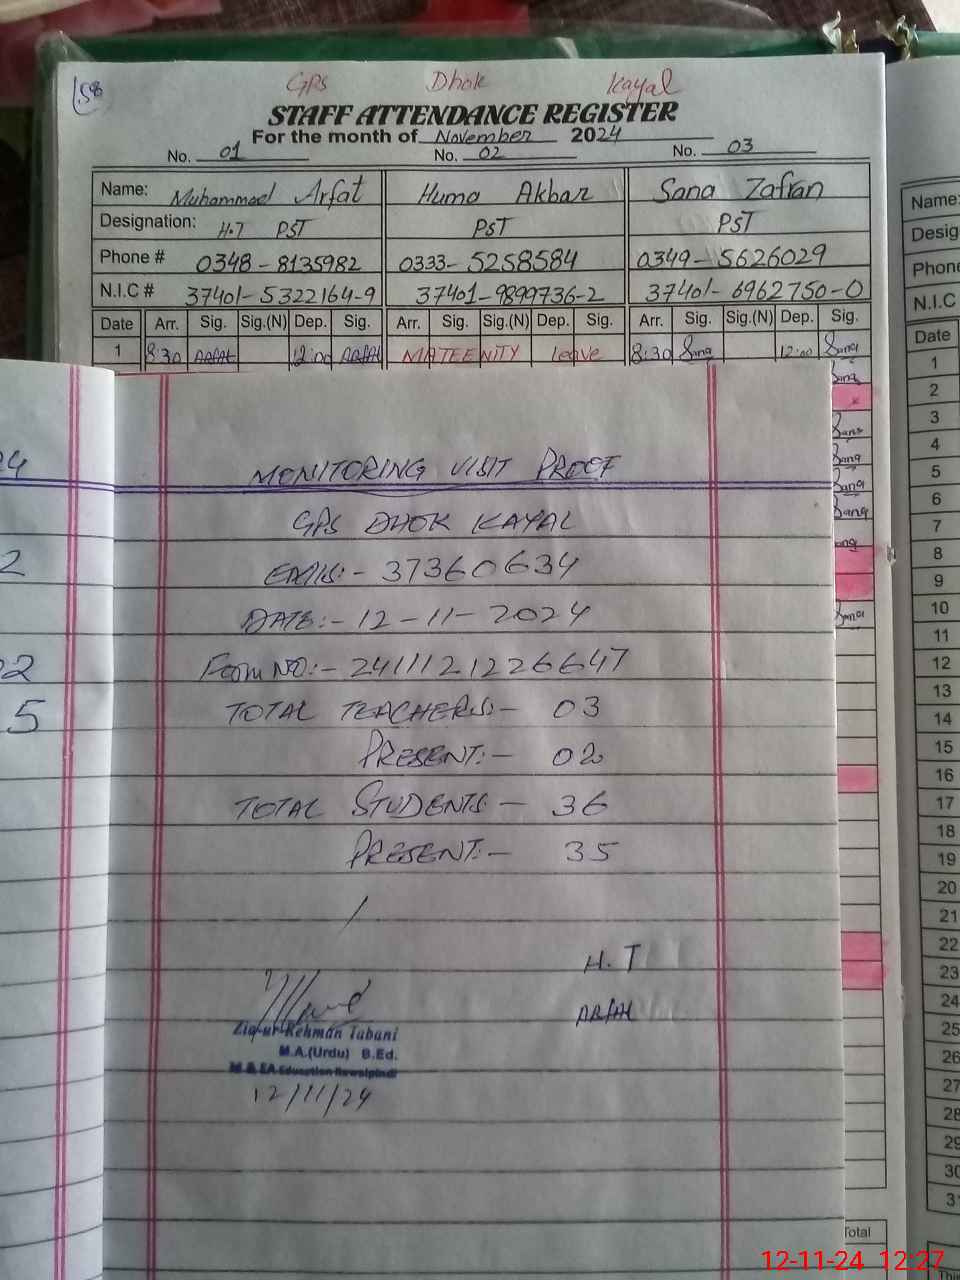 58
GPS Dhok Kayal
STAFF ATTENDANCE REGISTER
For the month of November 2024
No. 01 No. 02 No. 03
Name: Muhammad Arfat Huma Akbar Sana Zafran
Designation: H.T PST PST PST
Phone # 0348-8135982 0333-5258584 0349-5626029
N.I.C # 37401-5322164-9 37401-9899736-2 37401-6962750-0
Date Arr. Sig. Sig.(N) Dep. Sig. Arr. Sig. Sig.(N) Dep. Sig. Arr. Sig. Sig.(N) Dep. Sig.
1 8:30 Arfat 12:00 Arfat MATERNITY leave 8:30 Sana 12:00 Sana
MONITORING VISIT PROOF
GPS DHOK KAYAL
EMIS:- 37360634
DATE:- 12-11-2024
Form NO:- 2411121226647
TOTAL TEACHERS:- 03
PRESENT:- 02
TOTAL STUDENTS:- 36
PRESENT:- 35
H.T
ARFAT
Zia-ur-Rehman Tabani
M.A.(Urdu) B.Ed.
M & EA Education Rawalpindi
12/11/24
Name:
Desig
Phone
N.I.C
Date
1
2
3
4
5
6
7
8
9
10
11
12
13
14
15
16
17
18
19
20
21
22
23
24
25
26
27
28
29
30
Total
12-11-24 12:27